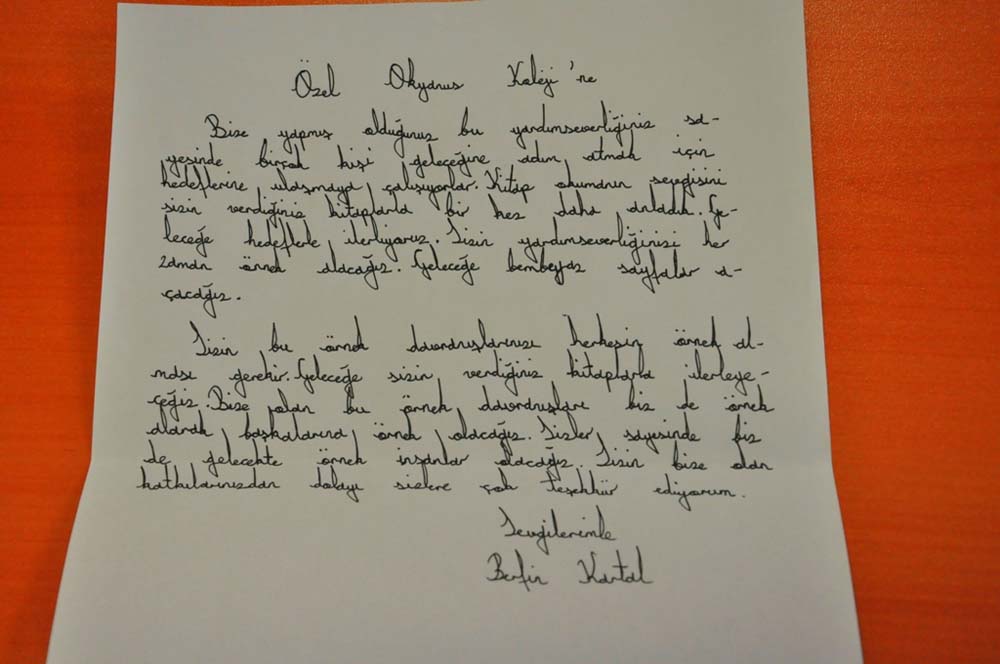 Özel Okyanus Koleji'ne
Bize yapmış olduğunuz bu yardımseverliğiniz sa-
yesinde birçok kişi geleceğine adım atmak için
hedeflerine ulaşmaya çalışıyorlar. Kitap okumanın sevgisini
sizin verdiğiniz kitaplarla bir kez daha anladık. Ge-
leceğe hedeflerle ilerliyoruz. Sizin yardımseverliğinizi her
zaman örnek alacağız. Geleceğe bembeyaz sayfalar a-
çacağız.
Sizin bu örnek davranışlarınızı herkesin örnek al-
ması gerekir. Geleceğe sizin verdiğiniz kitaplarla ilerleye-
ceğiz. Bize olan bu örnek davranışları biz de örnek
alarak başkalarına örnek olacağız. Sizler sayesinde biz
de gelecekte örnek insanlar olacağız. Sizin bize olan
katkılarınızdan dolayı sizlere çok teşekkür ediyorum.
Sevgilerimle
Berfin Kartal